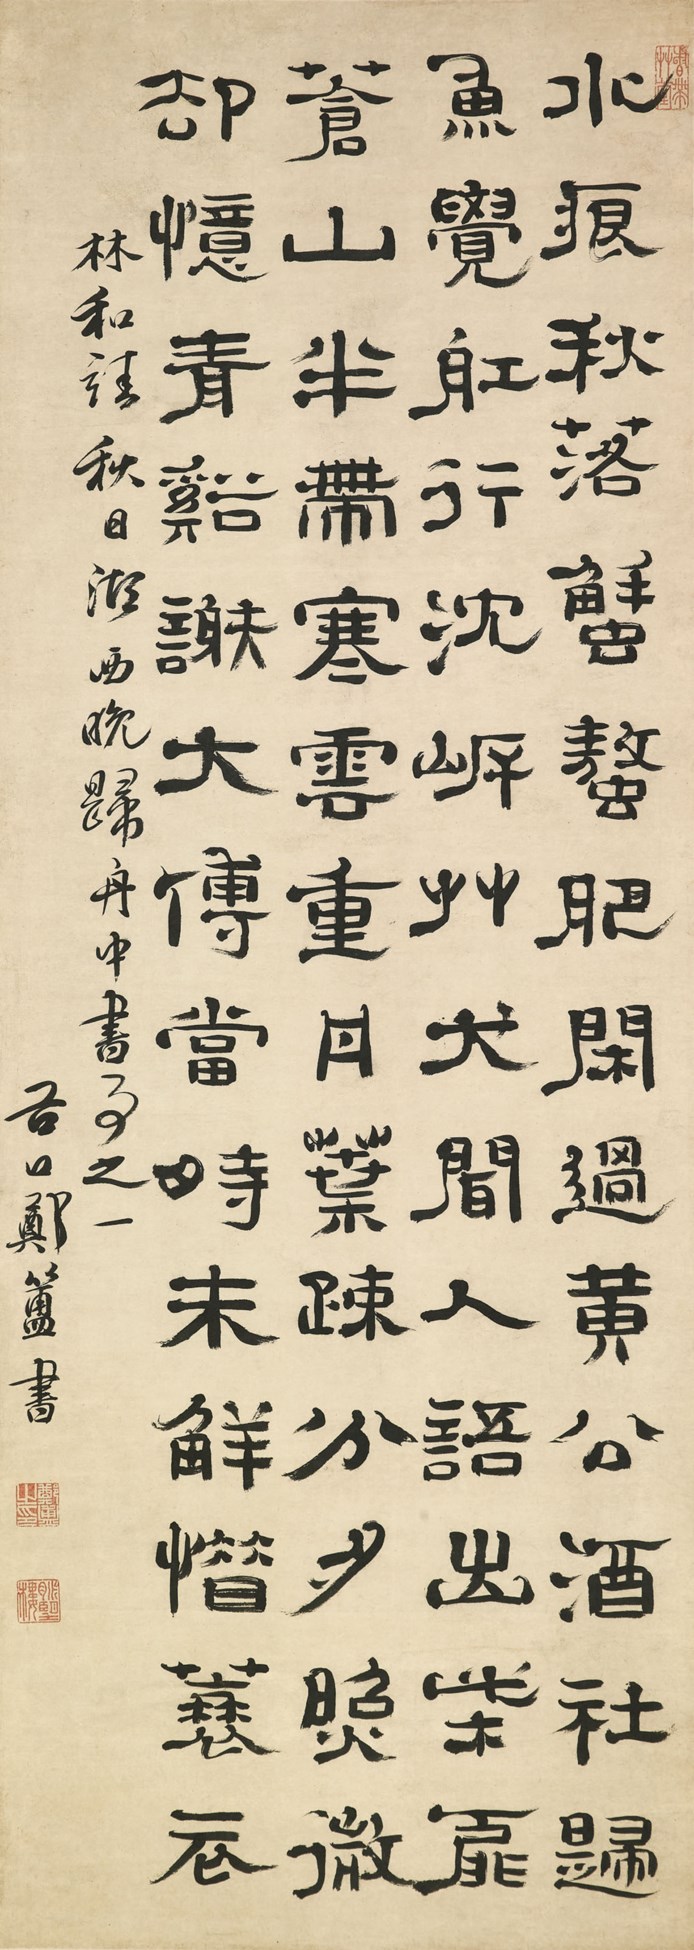 水痕秋落蟹螯肥閑過黃公酒社歸
魚覺舡行沈岸艸犬聞人語出柴扉
蒼山半帶寒雲重丹葉疎分夕照微
却憶青谿謝大傅當時未解惜蓑衣
林和靖秋日湖西晚歸舟中書事之一
谷口鄭簠書
鄭簠之印